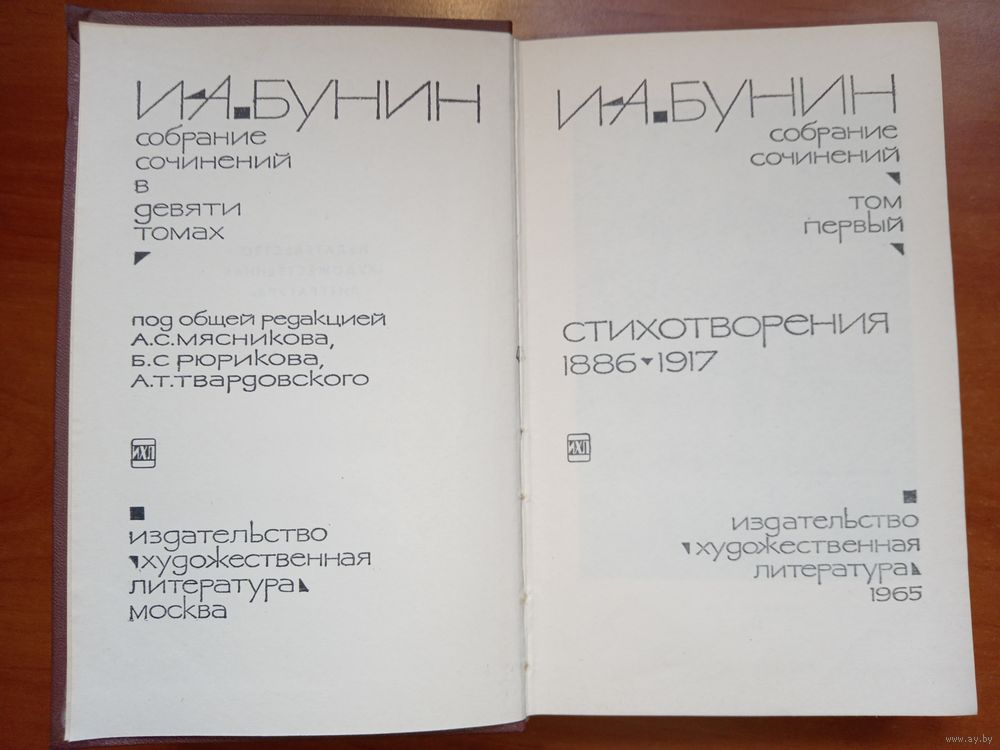 И·А.БУНИН
собрание
сочинений
в
девяти
томах
под общей редакцией
А.С.Мясникова,
Б.С Рюрикова,
А.Т.Твардовского
ИХЛ
издательство
художественная
литература
москва
И·А.БУНИН
собрание
сочинений
том
первый
стихотворения
1886 1917
ИХЛ
издательство
художественная
литература
1965
www.ay.by